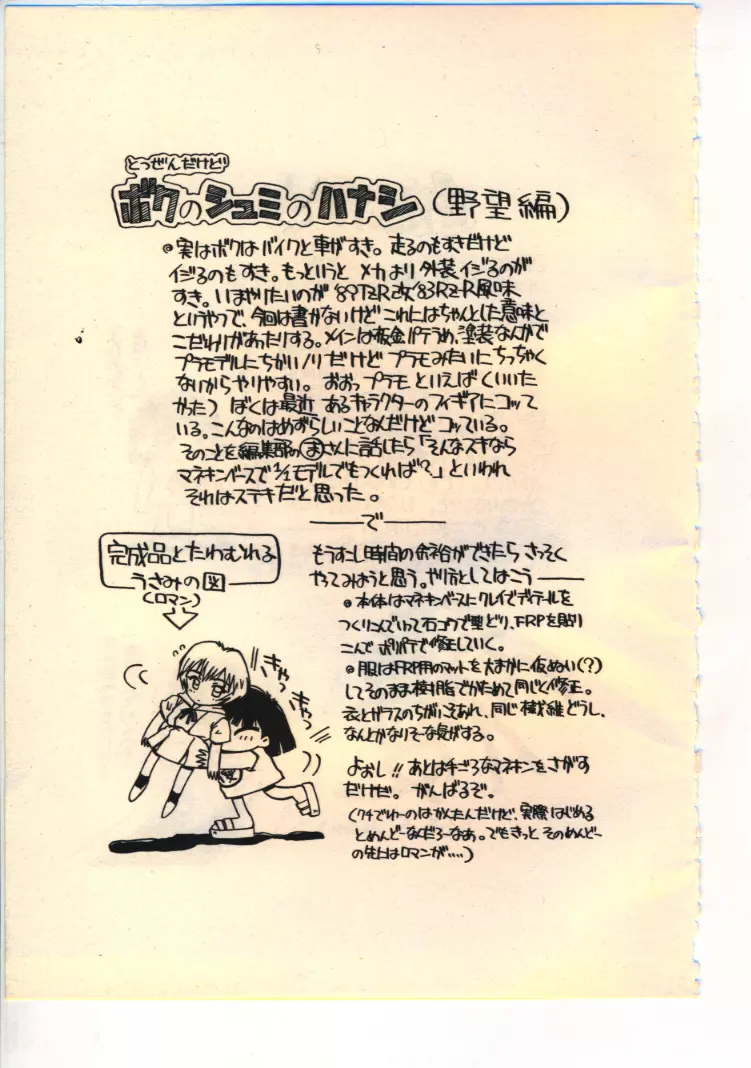 とつぜんだけど
ボクのシュミのハナシ(野望編)
◎実はボクはバイクと車がすき。走るのもすきだけど
イジるのもすき。もっというと メカより外装イジるのが
すき。いまやりたいのが '89TZR改'83RZ-R風味
というやつで、今回は書かないけど これにはちゃんとした意味と
こだわりがあったりする。メインは板金パテうめ、塗装なんかで
プラモデルにちかいノリだけど プラモみたいにちっちゃく
ないからやりやすい。おおっプラモ といえば(いいた
かった) ぼくは最近 あるキャラクターのフィギアにコッて
いる。こんなのはめずらしいことなんだけどコッている。
そのことを編集部のまさんに話したら「そんなスキなら
マネキンベースで1/1モデルでもつくれば?」といわれ
それはステキだと思った。
で
もうすこし時間の余裕ができたら さっそく
やってみようと思う。やり方としてはこう——
◎本体はマネキンベースにクレイでディテールを
つくりこんでいって石コウで型どり、FRPを貼り
こんで ポリパテで修正していく。
◎服はFRP用のマットを大まかに仮ぬい(?)
してそのまま樹脂でかためて同じく修正。
衣とガラスのちがいこそあれ、同じ繊維どうし、
なんとかなりそーな気がする。
よおし!! あとは手ごろなマネキンをさがす
だけだ。がんばるぞ。
(クチでゆーのはかんたんだけど、実際はじめる
とめんどーなんだろーなあ。でもきっと そのめんどー
の先にはロマンが.....)
完成品とたわむれる
うさみの図
(ロマン)
きゃっ
きゃっ